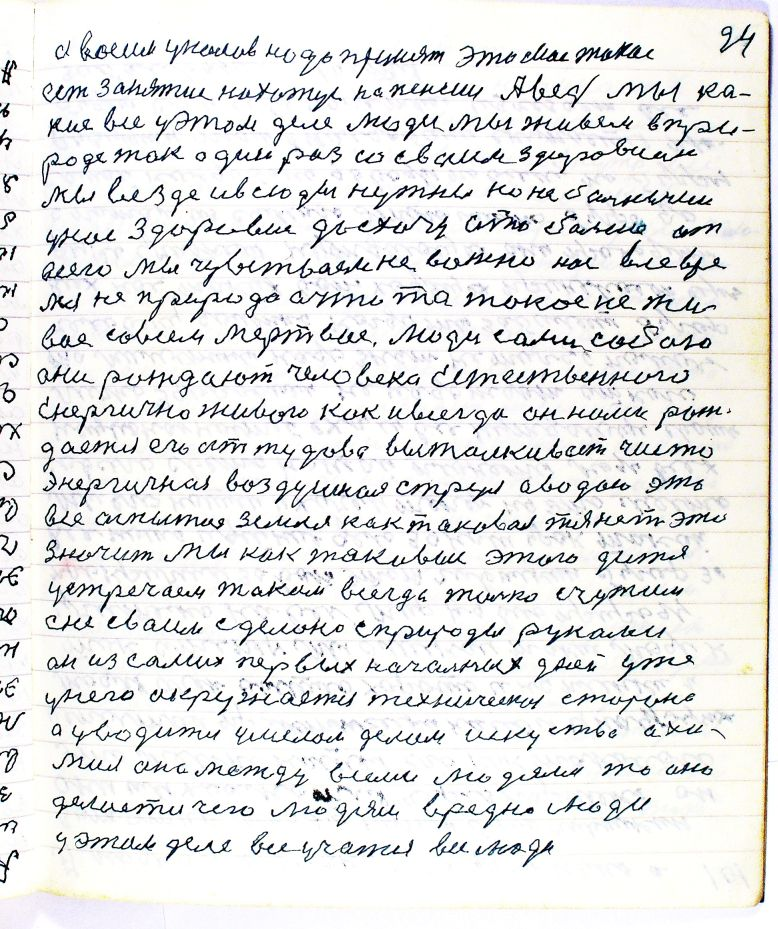 94
а воеим уколов надо принят это мае такое
ест занятие нахожус на пенсии А вед мы ка-
кие все у этом деле люди мы живем в при-
роде так один раз со сваим здоровием
мы везде и всюды нужны но не
укое здоровие до схочу а то болно от
всего мы чувствоем не важно нас
мя не природа а что та такое не жи-
вое совсем мертвое, люди сами сабою
они рождают человека естественного
енергично живого как и всегда он нами рож-
дается его от тудова выталкивает чисто
энергичная воздушная струя а водою это
все а земля как таковая тянет это
значит мы как таковые этого дитя
устречаем таком всегда толко счужим
сне сваим сделано с природы руками
он из самих первых началных дней уже
у него окружается техническая сторона
а уводится умелом делом искуства а хи-
мия она между всеми людями то она
делается чего людям вредно люди
у этом деле все учатся все люди